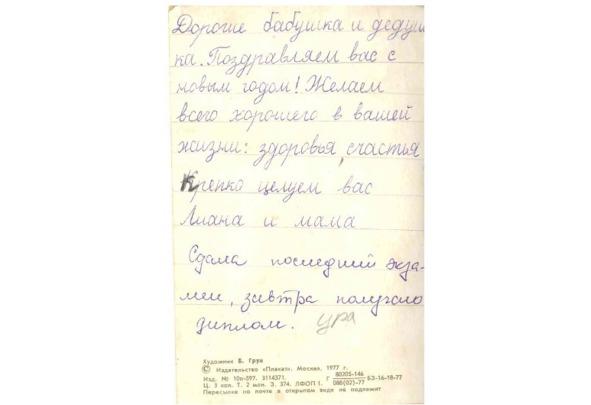 Дорогие бабушка и дедуш
ка. Поздравляем вас с
новым годом! Желаем
всего хорошего в вашей
жизни: здоровья, счастья
Крепко целуем вас
Лиана и мама
Сдала последний экза-
мен, завтра получаю
диплом. ура
Художник Б. Грук
© Издательство «Плакат». Москва, 1977 г.
Изд. № 10п-597. 3114371. Г 80205-146 БЗ-16-18-77
Ц. 3 коп. Т. 2 млн. З. 374. ЛФОП 1. 086(02)-77
Пересылка по почте в открытом виде не подлежит